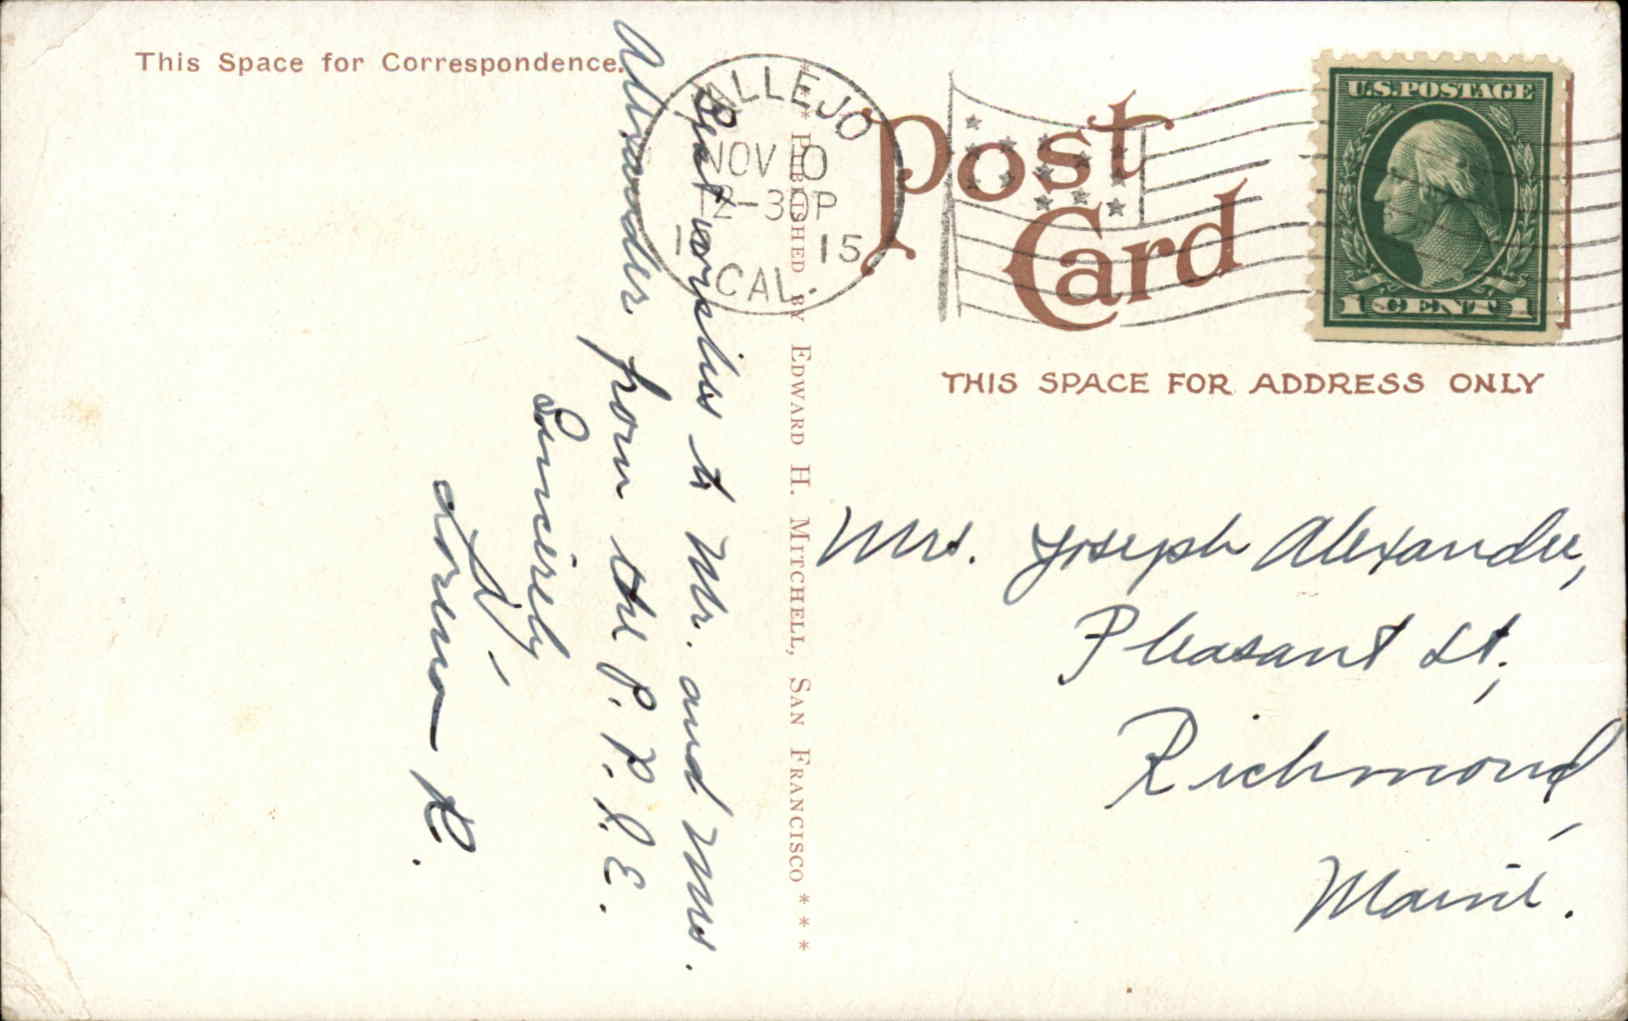 This Space for Correspondence.
Best wishes to Mr. and Mrs.
Alexander from the P. P. I. E.
Sincerely
Lorena K.
* PUBLISHED BY EDWARD H. MITCHELL, SAN FRANCISCO * * *
VALLEJO
NOV 10
12-30P
1915
CAL.
Post
Card
U.S. POSTAGE
1 CENT 1
THIS SPACE FOR ADDRESS ONLY
Mrs. Joseph Alexander,
Pleasant St,
Richmond,
Maine.